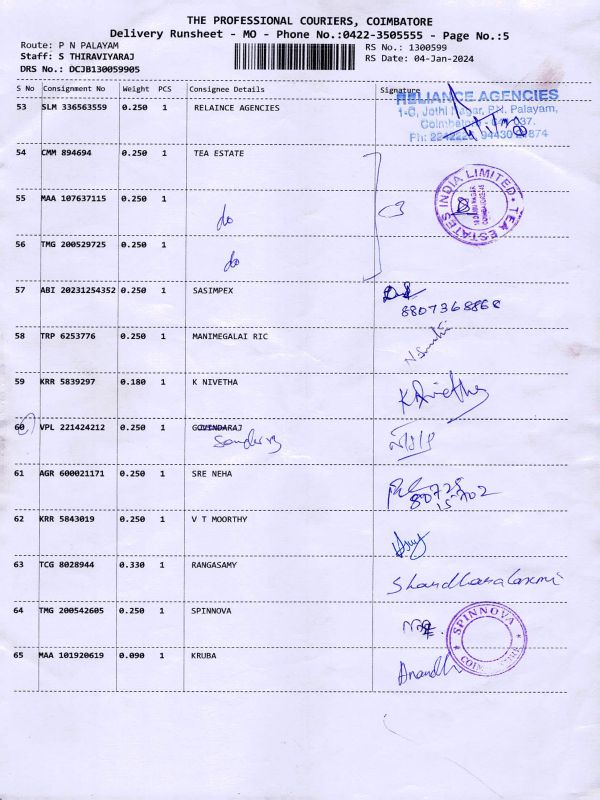 THE PROFESSIONAL COURIERS, COIMBATORE
Delivery Runsheet - MO - Phone No.:0422-3505555 - Page No.:5
Route: P N PALAYAM
Staff: S THIRAVIYARAJ
DRS No.: DCJB130059905
RS No.: 1300599
RS Date: 04-Jan-2024
S No Consignment No Weight PCS Consignee Details Signature
53 SLM 336563559 0.250 1 RELAINCE AGENCIES
RELIANCE AGENCIES
1-C, Jothi Nagar, P.N. Palayam,
Coimbatore
54 CMM 894694 0.250 1 TEA ESTATE
TEA ESTATES INDIA LIMITED
55 MAA 107637115 0.250 1
do
56 TMG 200529725 0.250 1
do
57 ABI 20231254352 0.250 1 SASIMPEX
8807368868
58 TRP 6253776 0.250 1 MANIMEGALAI RIC
59 KRR 5839297 0.180 1 K NIVETHA
K Nivetha
60 VPL 221424212 0.250 1 GOVINDARAJ
61 AGR 600021171 0.250 1 SRE NEHA
62 KRR 5843019 0.250 1 V T MOORTHY
63 TCG 8028944 0.330 1 RANGASAMY
64 TMG 200542605 0.250 1 SPINNOVA
SPINNOVA
65 MAA 101920619 0.090 1 KRUBA
Anandhi